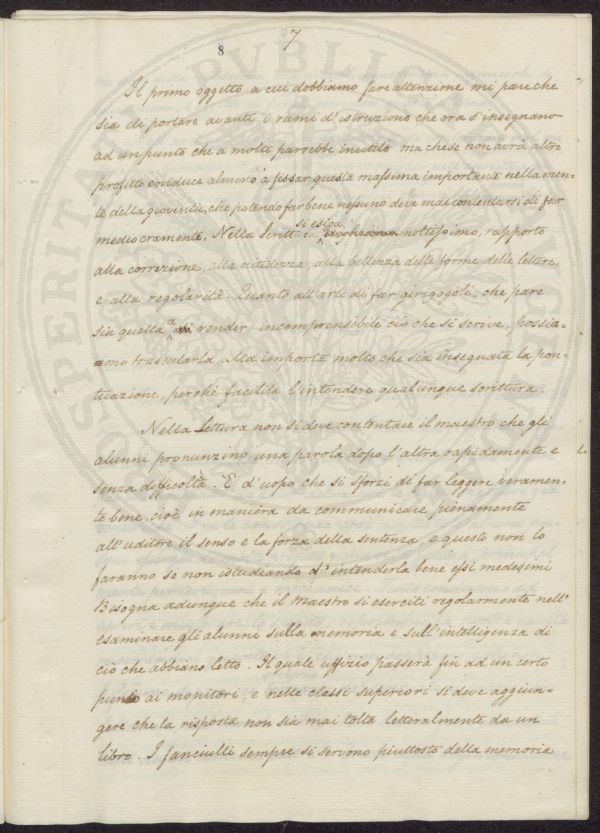 8 7
Il primo oggetto a cui dobbiamo fare attenzione mi pare che
sia di portare avanti i rami d'istruzione che ora s'insegnano
ad un punto che a molti parrebbe inutile ma che se non avrà altro
profitto conduce almeno a fissar questa massima importante nella men-
te della gioventù, che potendo far bene nessuno deve mai contentarsi di far
mediocremente. Nella Scrittura si esiga moltissimo, rapporto
alla correzione, alla nitidezza, alla bellezza delle forme delle lettere,
e alla regolarità. Quanto all'arte di far girigogoli, che pare
sia quella a render incomprensibile ciò che si scrive, possia-
mo trascurarla. Ma importa molto che sia insegnata la pon-
tuazione, perché facilita l'intendere qualunque scrittura.
Nella Lettura non si deve contentare il maestro che gli
alunni pronunzino una parola dopo l'altra rapidamente e
senza difficoltà. E d'uopo che si sforzi di far leggere veramen-
te bene, cioè in maniera da communicare pienamente
all'uditore il senso e la forza della sentenza, e questo non lo
faranno se non istudiando d'intenderla bene essi medesimi
Bisogna adunque che il Maestro si eserciti regolarmente nell'
esaminare gli alunni sulla memoria e sull'intelligenza di
ciò che abbiano letto. Il quale uffizio passerà fin ad un certo
punto ai monitori, e nelle classi superiori si deve aggiun-
gere che la risposta non sia mai tolta letteralmente da un
libro. I fanciulli sempre si servono piuttosto della memoria